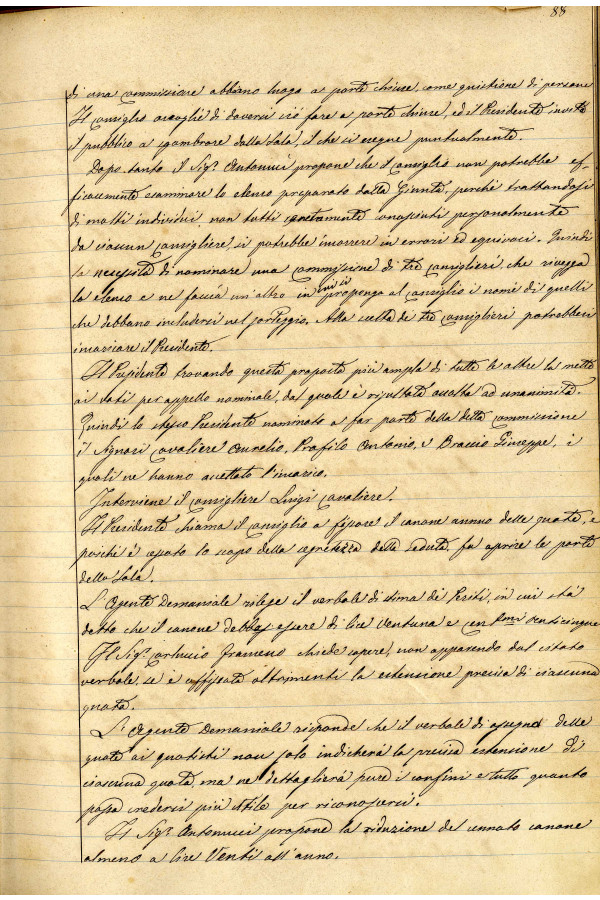 88
di una commissione abbiano luogo a porte chiuse, come quistione di persone
Il consiglio accoglie di doversi ciò fare a porte chiuse, ed il Presidente invita
il pubblico a sgombrare dalla Sala, il che si esegue puntualmente.
Dopo tanto il Sig.r Antonucci propone che il Consiglio non potrebbe ef-
ficacemente esaminare lo elenco preparato dalla Giunta, perchè trattandosi
di molti individui non tutti certamente conosciuti personalmente
da ciascun consigliere, si potrebbe incorrere in errori ed equivoci. Quindi
la necessità di nominare una commissione di tre consiglieri, che rivegga
lo elenco e ne faccia un'altro in cui si proponga al consiglio i nomi di quelli
che debbano includersi nel sorteggio. Alla scelta dei tre consiglieri potrebbesi
incaricare il Presidente.
Il Presidente trovando questa proposta più ampla di tutte le altre la mette
ai voti per appello nominale, dal quale è risultata accolta ad unanimità.
Quindi lo stesso Presidente nominato a far parte della detta commissione
i Signori Cavaliere Aurelio, Profilo Antonio, e Braccio Giuseppe, i
quali ne hanno accettato l'incarico.
Interviene il consigliere Luigi Cavaliere.
Il Presidente chiama il consiglio a fissare il canone annuo delle quote, e
poichè è cessato lo scopo della segretezza della seduta, fa aprire le porte
della Sala.
L'Agente Demaniale rilege il verbale di stima dei Periti, in cui stà
detto che il canone debba essere di lire Ventuna e cen.smi Venticinque
Il Sig.r Carluccio Frameno chiede sapere, non apparendo dal citato
verbale, se è officiata altrimenti la estensione precisa di ciascuna
quota.
L'Agente Demaniale risponde che il verbale di assegno delle
quote ai quotisti non solo indicherà la precisa estensione di
ciascuna quota, ma ne dettaglierà pure i confini e tutto quanto
possa credersi più utile per riconoscersi.
Il Sig.r Antonucci propone la riduzione del cennato canone
almeno a lire Venti all'anno.